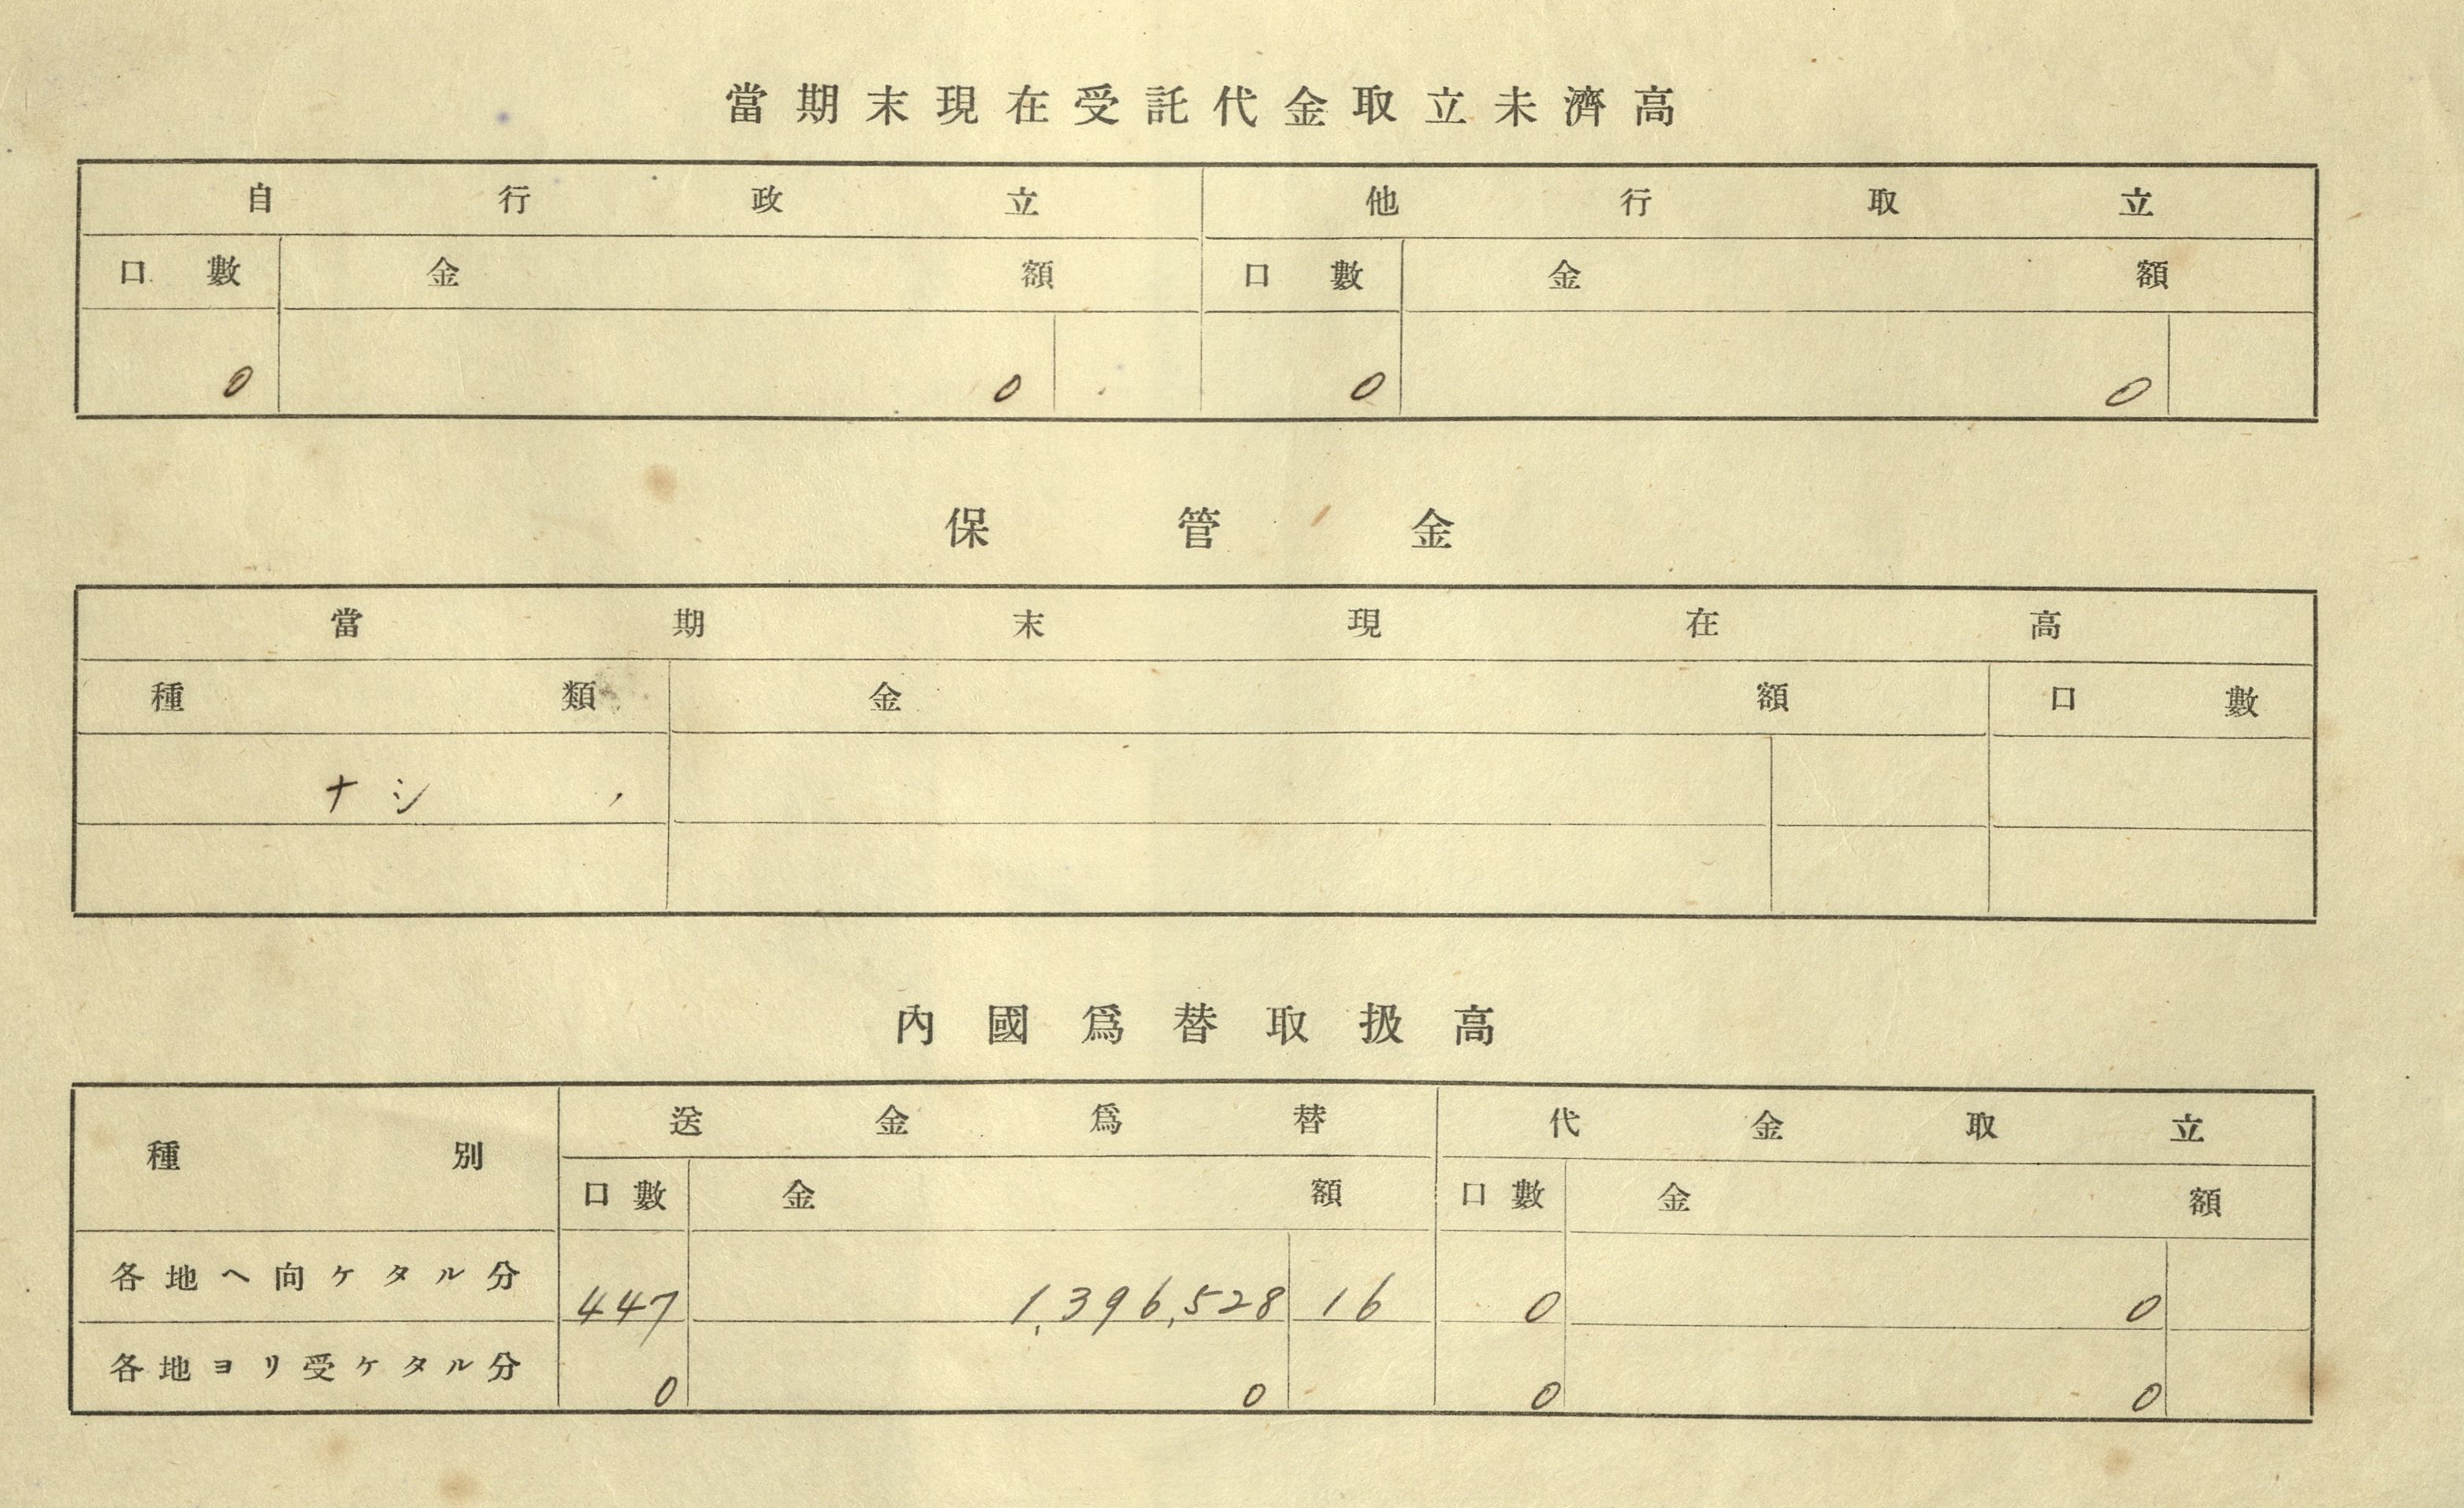 當期末現在受託代金取立未濟高
自行政立 他行取立
口數 金額 口數 金額
0 0 0 0
保管金
當期末現在高
種類 金額 口數
ナシ
內國爲替取扱高
種別 送金爲替 代金取立
口數 金額 口數 金額
各地ヘ向ケタル分 447 1,396,528 16 0 0
各地ヨリ受ケタル分 0 0 0 0